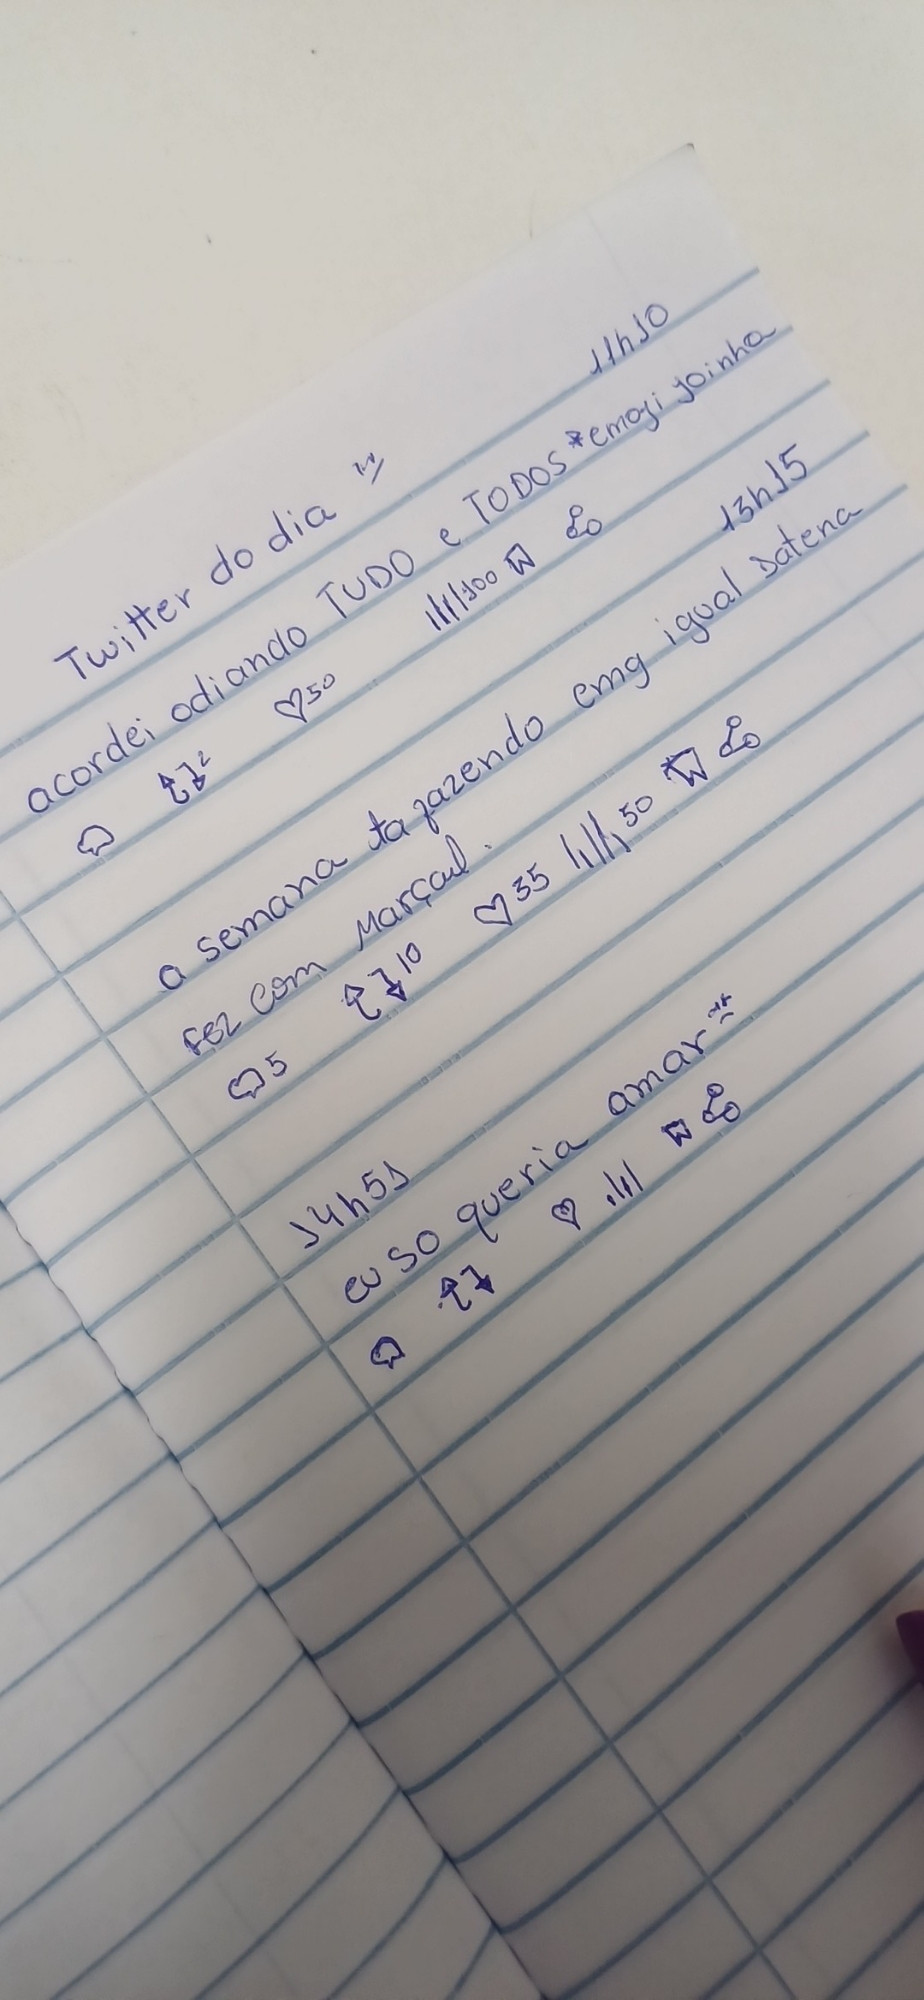 Twitter do dia
11h10
acordei odiando TUDO e TODOS *emoji joinha
2 50 100
13h15
a semana ta fazendo emg igual Datena
fez com Marçal.
5 10 35 50
14h51
eu so queria amar